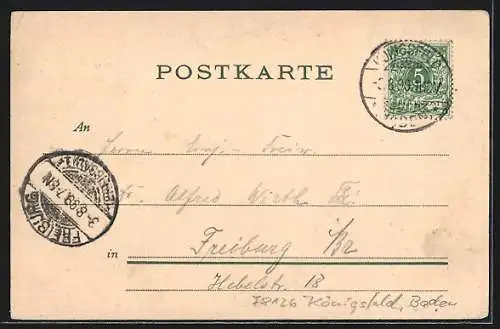 POSTKARTE
KÖNIGSFELD
5
An Herrn
Alfred Wirth
FREIBURG
3.8.99.7-8N
in Freiburg i/Br
Hebelstr. 18
78126 Königsfeld, Baden